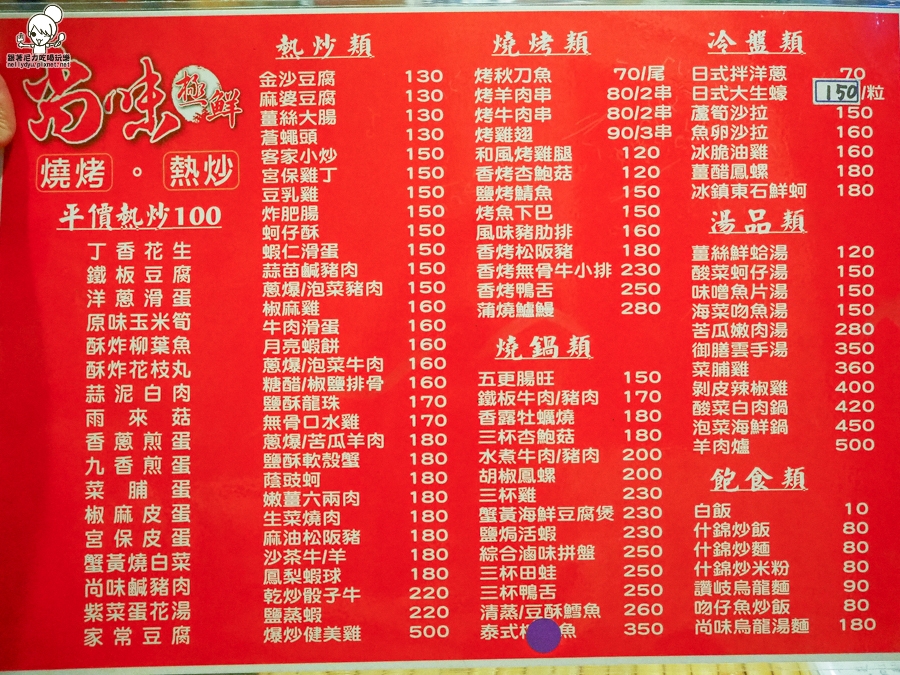 跟著尼力吃喝玩樂
nellydyu.pixnet.net
尚味極鮮
燒烤。熱炒
平價熱炒100
丁香花生
鐵板豆腐
洋蔥滑蛋
原味玉米筍
酥炸柳葉魚
酥炸花枝丸
蒜泥白肉
雨來菇
香蔥煎蛋
九香煎蛋
菜脯蛋
椒麻皮蛋
宮保皮蛋
蟹黃燒白菜
尚味鹹豬肉
紫菜蛋花湯
家常豆腐
熱炒類
金沙豆腐 130
麻婆豆腐 130
薑絲大腸 130
蒼蠅頭 130
客家小炒 150
宮保雞丁 150
豆乳雞 150
炸肥腸 150
蚵仔酥 150
蝦仁滑蛋 150
蒜苗鹹豬肉 150
蔥爆/泡菜豬肉 150
椒麻雞 160
牛肉滑蛋 160
月亮蝦餅 160
蔥爆/泡菜牛肉 160
糖醋/椒鹽排骨 160
鹽酥龍珠 170
無骨口水雞 170
蔥爆/苦瓜羊肉 180
鹽酥軟殼蟹 180
蔭豉蚵 180
嫩薑六兩肉 180
生菜燒肉 180
麻油松阪豬 180
沙茶牛/羊 180
鳳梨蝦球 180
乾炒骰子牛 220
鹽蒸蝦 220
爆炒健美雞 500
燒烤類
烤秋刀魚 70/尾
烤羊肉串 80/2串
烤牛肉串 80/2串
烤雞翅 90/3串
和風烤雞腿 120
香烤杏鮑菇 120
鹽烤鯖魚 150
烤魚下巴 150
風味豬肋排 160
香烤松阪豬 180
香烤無骨牛小排 230
香烤鴨舌 250
蒲燒鱸鰻 280
燒鍋類
五更腸旺 150
鐵板牛肉/豬肉 170
香露牡蠣燒 180
三杯杏鮑菇 180
水煮牛肉/豬肉 200
胡椒鳳螺 200
三杯雞 230
蟹黃海鮮豆腐煲 230
鹽焗活蝦 230
綜合滷味拼盤 250
三杯田蛙 250
三杯鴨舌 250
清蒸/豆酥鱈魚 260
泰式 魚 350
冷盤類
日式拌洋蔥 70
日式大生蠔 150/粒
蘆筍沙拉 150
魚卵沙拉 160
冰脆油雞 160
薑醋鳳螺 180
冰鎮東石鮮蚵 180
湯品類
薑絲鮮蛤湯 120
酸菜蚵仔湯 150
味噌魚片湯 150
海菜吻魚湯 150
苦瓜嫩肉湯 280
御膳雲手湯 350
菜脯雞 360
剝皮辣椒雞 400
酸菜白肉鍋 420
泡菜海鮮鍋 450
羊肉爐 500
飽食類
白飯 10
什錦炒飯 80
什錦炒麵 80
什錦炒米粉 80
讚岐烏龍麵 90
吻仔魚炒飯 80
尚味烏龍湯麵 180